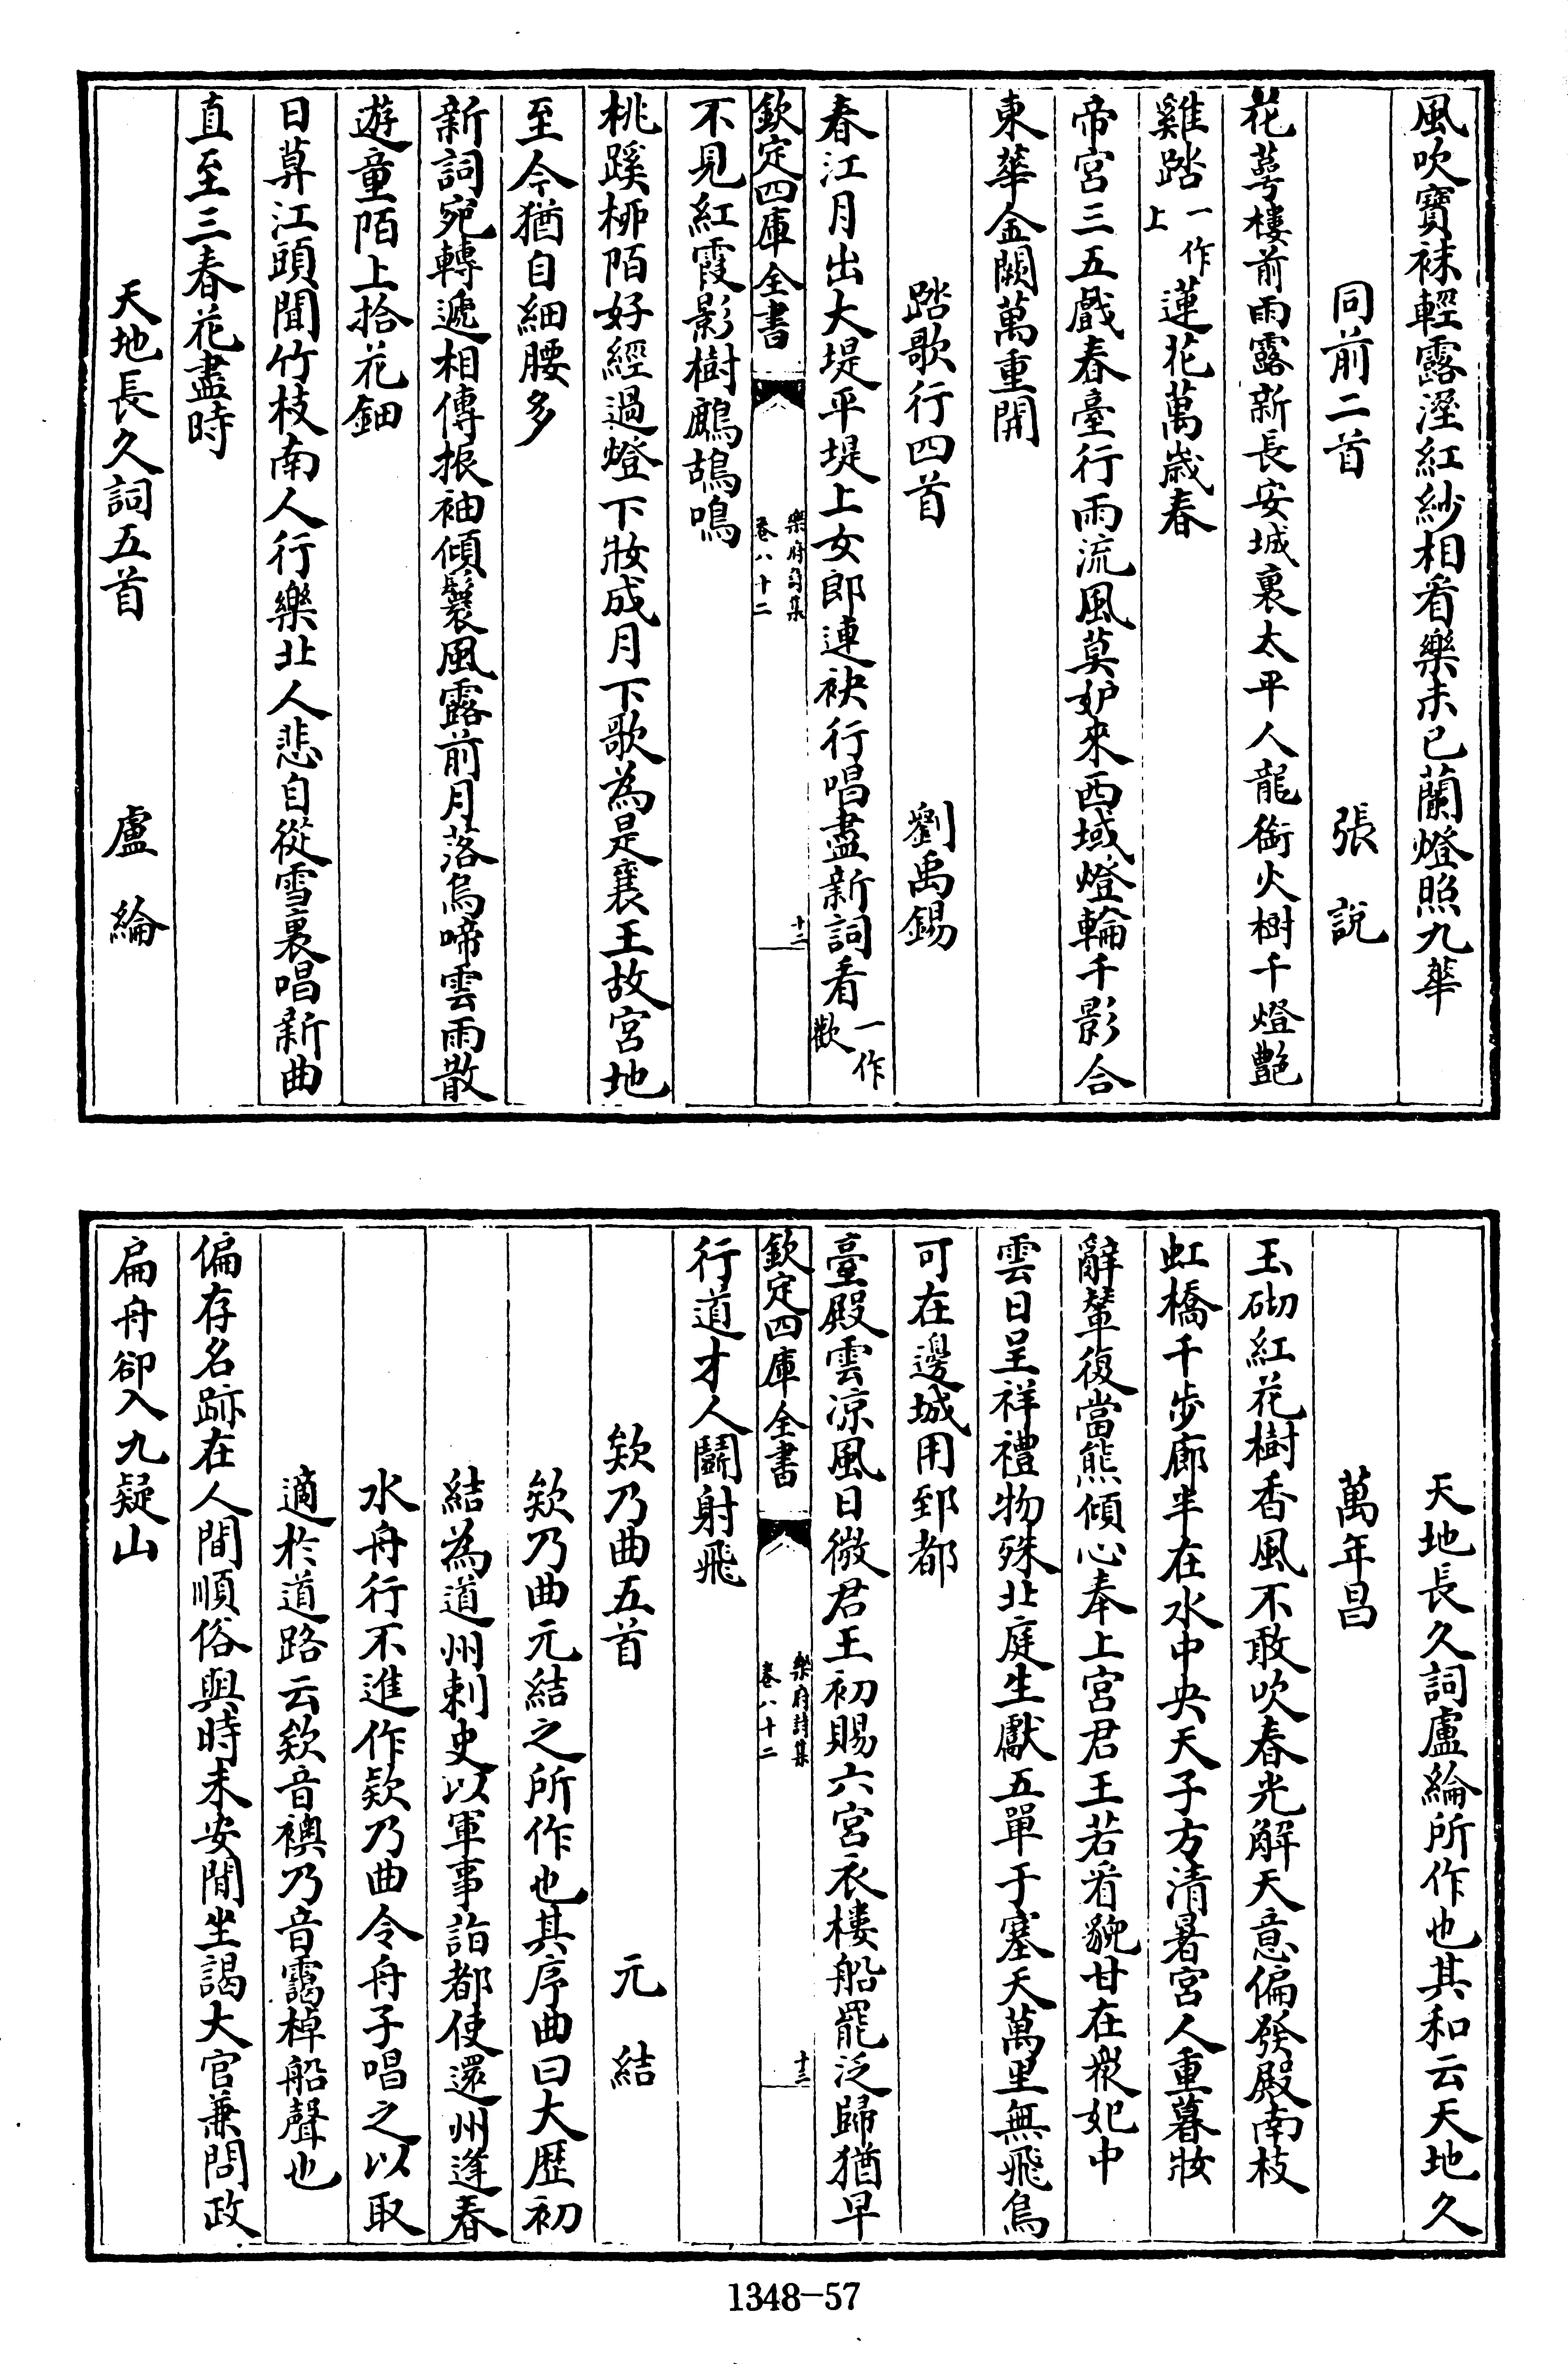 風吹寶袜輕露溼紅紗相看樂未已蘭燈照九華
同前二首　張說
花萼樓前雨露新長安城裏太平人龍銜火樹千燈艶
雞踏一作上蓮花萬歲春
帝宮三五戲春臺行雨流風莫妒來西域燈輪千影合
東華金闕萬重開
踏歌行四首　劉禹錫
春江月出大堤平堤上女郎連袂行唱盡新詞看一作歡
欽定四庫全書　樂府詩集卷八十二　十二
不見紅霞影樹鷓鴣鳴
桃蹊桺陌好經過燈下妝成月下歌為是襄王故宮地
至今猶自細腰多
新詞宛轉遞相傳振袖傾鬟風露前月落烏啼雲雨散
遊童陌上拾花鈿
日暮江頭聞竹枝南人行樂北人悲自從雪裏唱新曲
直至三春花盡時
天地長久詞五首　盧綸
天地長久詞盧綸所作也其和云天地久
萬年昌
玉砌紅花樹香風不敢吹春光解天意偏發殿南枝
虹橋千步廊半在水中央天子方清暑宮人重暮妝
辭輦復當熊傾心奉上宮君王若看貌甘在衆妃中
雲日呈祥禮物殊北庭生獻五單于塞天萬里無飛鳥
可在邊城用郅都
臺殿雲凉風日微君王初賜六宮衣樓船罷泛歸猶早
欽定四庫全書　樂府詩集卷八十二　十三
行道才人鬭射飛
欸乃曲五首　元結
欸乃曲元結之所作也其序曲曰大歷初
結為道州刺史以軍事詣都使還州逢春
水舟行不進作欸乃曲令舟子唱之以取
適於道路云欸音襖乃音靄棹船聲也
偏存名跡在人間順俗與時未安閒坐謁大官兼問政
扁舟卻入九疑山
1348-57